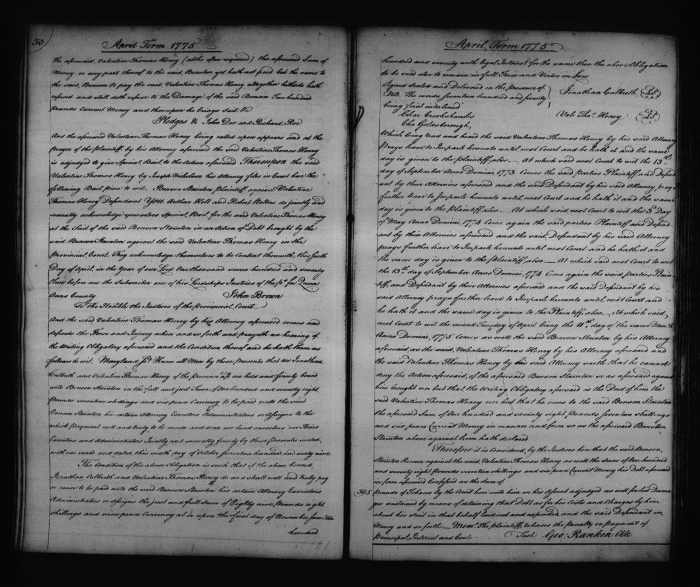 50
April Term 1775
the aforesaid, Valentine Thomas Henry (altho often required) the aforesaid Sum of
Money or any part thereof to the said, Benson yet hath not paid but the same to
the said, Benson to pay the said, Valentine Thomas Henry altogether hitherto hath
refused and still doth refuse to the Damage of the said Benson Two hundred
pounds Current Money and thereupon he brings Suit &c
Pledges &c John Doe and Richard Roe
And the aforesaid Valentine Thomas Henry being called upon appears and at the
prayer of the Plaintiff by his Attorney aforesaid the said Valentine Thomas Henry
is adjudged to give Special Bail to the Action aforesaid Thereupon the said
Valentine Thomas Henry by Joseph his Attorney files in Court here the
following Bail piece to wit. Benson Stainton plaintiff against Valentine
Thomas Henry Defendant You Arthur Holt and Robert Walters do jointly and
severally acknowledge yourselves Special Bail for the said Valentine Thomas Henry
at the Suit of the said Benson Stainton in an Action of Debt brought by the
said Benson Stainton against the said Valentine Thomas Henry in the
Provincial Court. They acknowledge themselves to be Content therewith this
Day of April, in the Year of our Lord One thousand seven hundred and seventy
before me the Subscriber one of his Lordships Justices of the for Queen
Anns County John Brown
To the Honble the Justices of the provincial Court
And the said Valentine Thomas Henry by his Attorney aforesaid comes and
defends the Force and Injury when and so forth and prayeth an hearing of
the Writing Obligatory aforesaid and the Condition thereof and he hath them as
follows to wit. Maryland Know all Men by these Presents that we Jonathan
Culbreth and Valentine Thomas Henry of the province are held and firmly bound
unto Benson Stainton in the full and just Sum of One hundred and seventy eight
pounds seventeen shillings and six pence Currency to be paid unto the said
Benson Stainton his certain Attorney Executors Administrators or Assigns to the
which payment well and truly to be made and done we bind ourselves our Heirs
Executors and Administrators Jointly and severally firmly by these presents sealed,
with our seals and dated this ninth day of October seventeen hundred and sixty nine
The Condition of the above Obligation is such that if the above bound,
Jonathan Culbreth and Valentine Thomas Henry do and shall well and truly pay
or cause to be paid unto the said Benson Stainton his certain Attorney Executors
Administrators or Assigns the just and full Sum of Eighty nine pounds eight
shillings and nine pence Currency at or upon the first day of November seventeen
hundred
April Term 1775
hundred and seventy with legal Interest for the same then the above Obligation
to be void else to remain in full Force and Virtue in Law
Signed sealed and Delivered in the presence of Jonathan Culbreth
NB. The words seventeen hundred and seventy
being first interlined Vale Thos Henry
Which being read and heard the said Valentine Thomas Henry by his said Attorney
Prays leave to Imparle hereunto until next Court and he hath it and the same
day is given to the plaintiff, also. At which said next Court to wit the 13th
day of September Anno Domini, 1773 Comes the said Parties Plaintiff, and Defend
ant by their Attornies aforesaid and the said Defendant by his said Attorney, prays
further leave to Imparle hereunto until next Court and he hath it and the same
day is given to the plaintiff, also. At which said next Court to wit this Day
of May Anno Domini, 1774 Comes again the said parties Plaintiff and Defend
ant by their Attornies aforesaid and the said, Defendant by his said Attorney
prays further leave to Imparle hereunto until next Court and he hath it and
the same day is given to the plaintiff, also. At which said next Court to wit
the 13th day of September Anno Domini, 1774 Come again the said parties Plain
tiff, and Defendant by their Attornies aforesaid and the said Defendant by his
said Attorney prays further leave to Imparle hereunto until next Court and
he hath it and the same day is given to the Plaintiff, also. At which said,
next Court to wit the second Tuesday of April being the 11th day of the same Month
Anno Domini, 1775 Comes as well the said Benson Stainton by his Attorney
aforesaid as the said, Valentine Thomas Henry by his Attorney aforesaid and
the said Valentine Thomas Henry by his said Attorney saith that he cannot
deny the Action aforesaid, of the aforesaid Benson Stainton in as aforesaid against
him brought nor but that the Writing Obligatory aforesaid is the Deed of him the
said Valentine Thomas Henry nor but that he owes to the said Benson Stainton
the aforesaid Sum of One hundred and seventy eight pounds seventeen shillings
and six pence Current Money in manner and form as the aforesaid Benson
Stainton above against him hath declared
Therefore it is Considered, by the Justices here that the said Benson,
Stainton Recover against the said, Valentine Thomas Henry as well the Sum of One hundred
and seventy eight pounds seventeen shillings and six pence Current Money his Debt aforesaid
in form aforesaid Confessed as the Sum of
505 Pounds of Tobacco by the Court here unto him on his Assent adjudged as well for his Dama
ges sustained by means of detaining that Debt as for his Costs and Charges by him
about his Suit in that behalf laid out and expended, and the said Defendant in
Mercy and so forth. Mem. The plaintiff releases the penalty on payment of
Principal Interest and Cost Test Geo: Ranken Clk